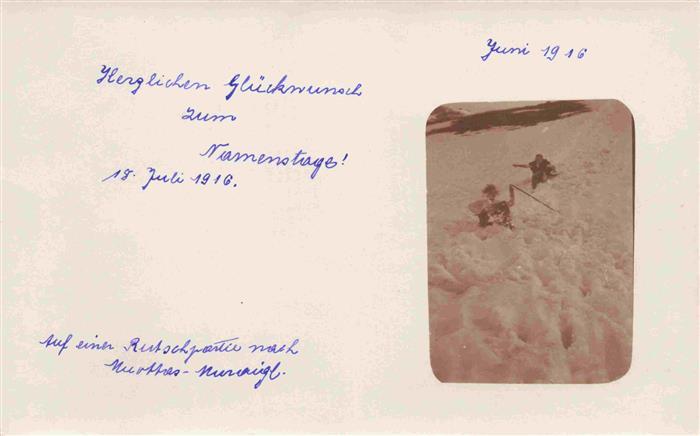 Juni 1916
Herzlichen Glückwunsch
zum
Namenstage!
18. Juli 1916.
Auf einer Rutschpartie nach
Muottas-Muraigl.